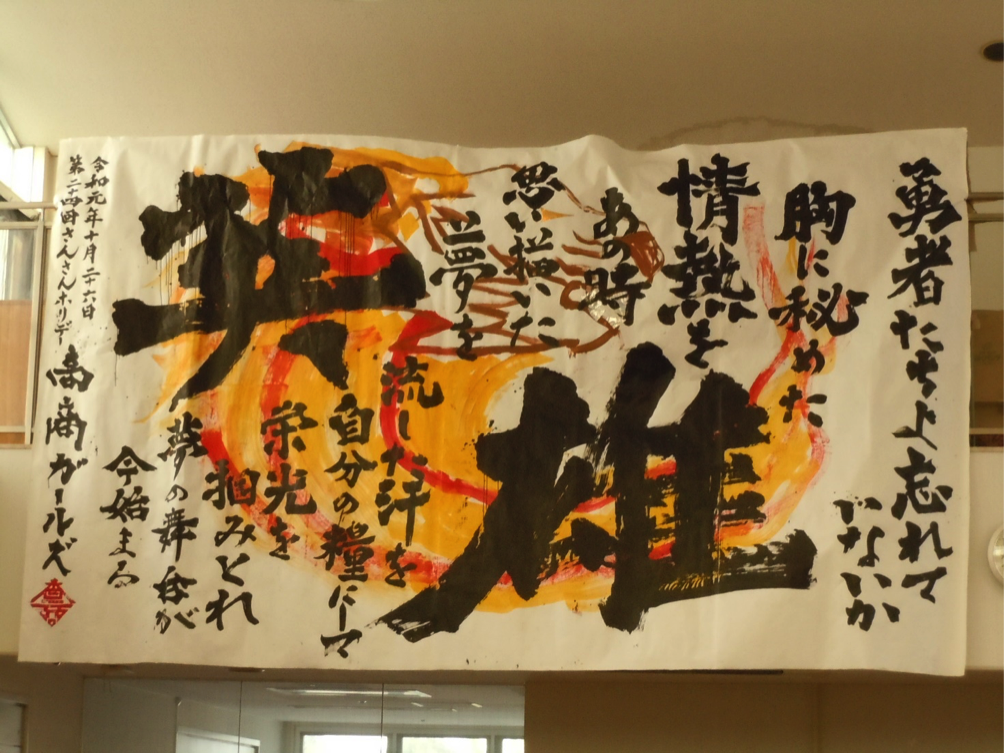 勇者たちよ忘れて
いないか
胸に秘めた
情熱を
あの時
思い描いた
夢を
英雄
流した汗を
自分の糧にして
栄光を
掴みとれ
夢の舞台が
今始まる
令和元年十月二十六日
第二十四回さんさんホリデー
高商ガールズ